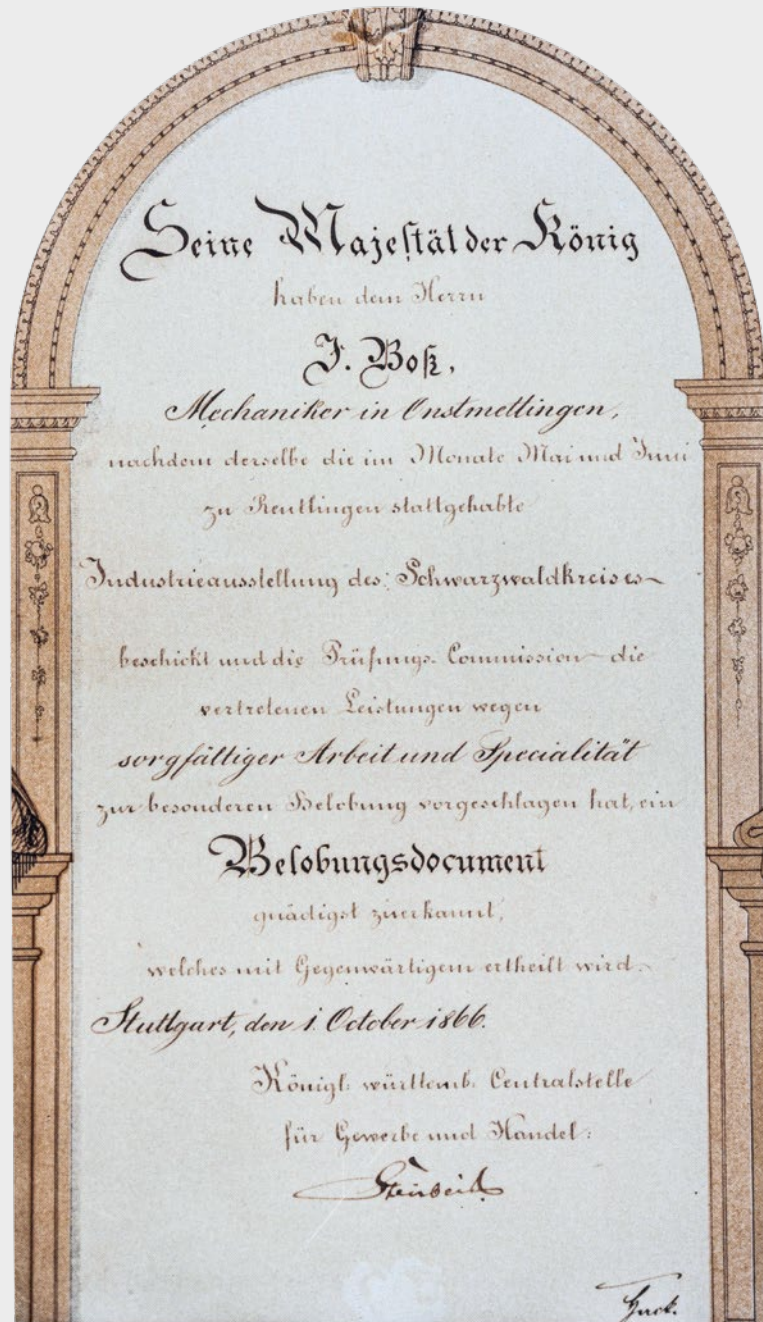 Seine Majestät der König
haben dem Herrn
J. Boß,
Mechaniker in Onstmettingen,
nachdem derselbe die im Monate Mai und Juni
zu Reutlingen stattgehabte
Industrieausstellung des Schwarzwaldkreises
beschickt und die Prüfungs-Commission die
vertretenen Leistungen wegen
sorgfältiger Arbeit und Specialität
zur besonderen Belobung vorgeschlagen hat, ein
Belobungsdocument
gnädigst zuerkannt,
welches mit Gegenwärtigem ertheilt wird.
Stuttgart, den 1. October 1866.
Königl. württemb. Centralstelle
für Gewerbe und Handel:
Steinbeis